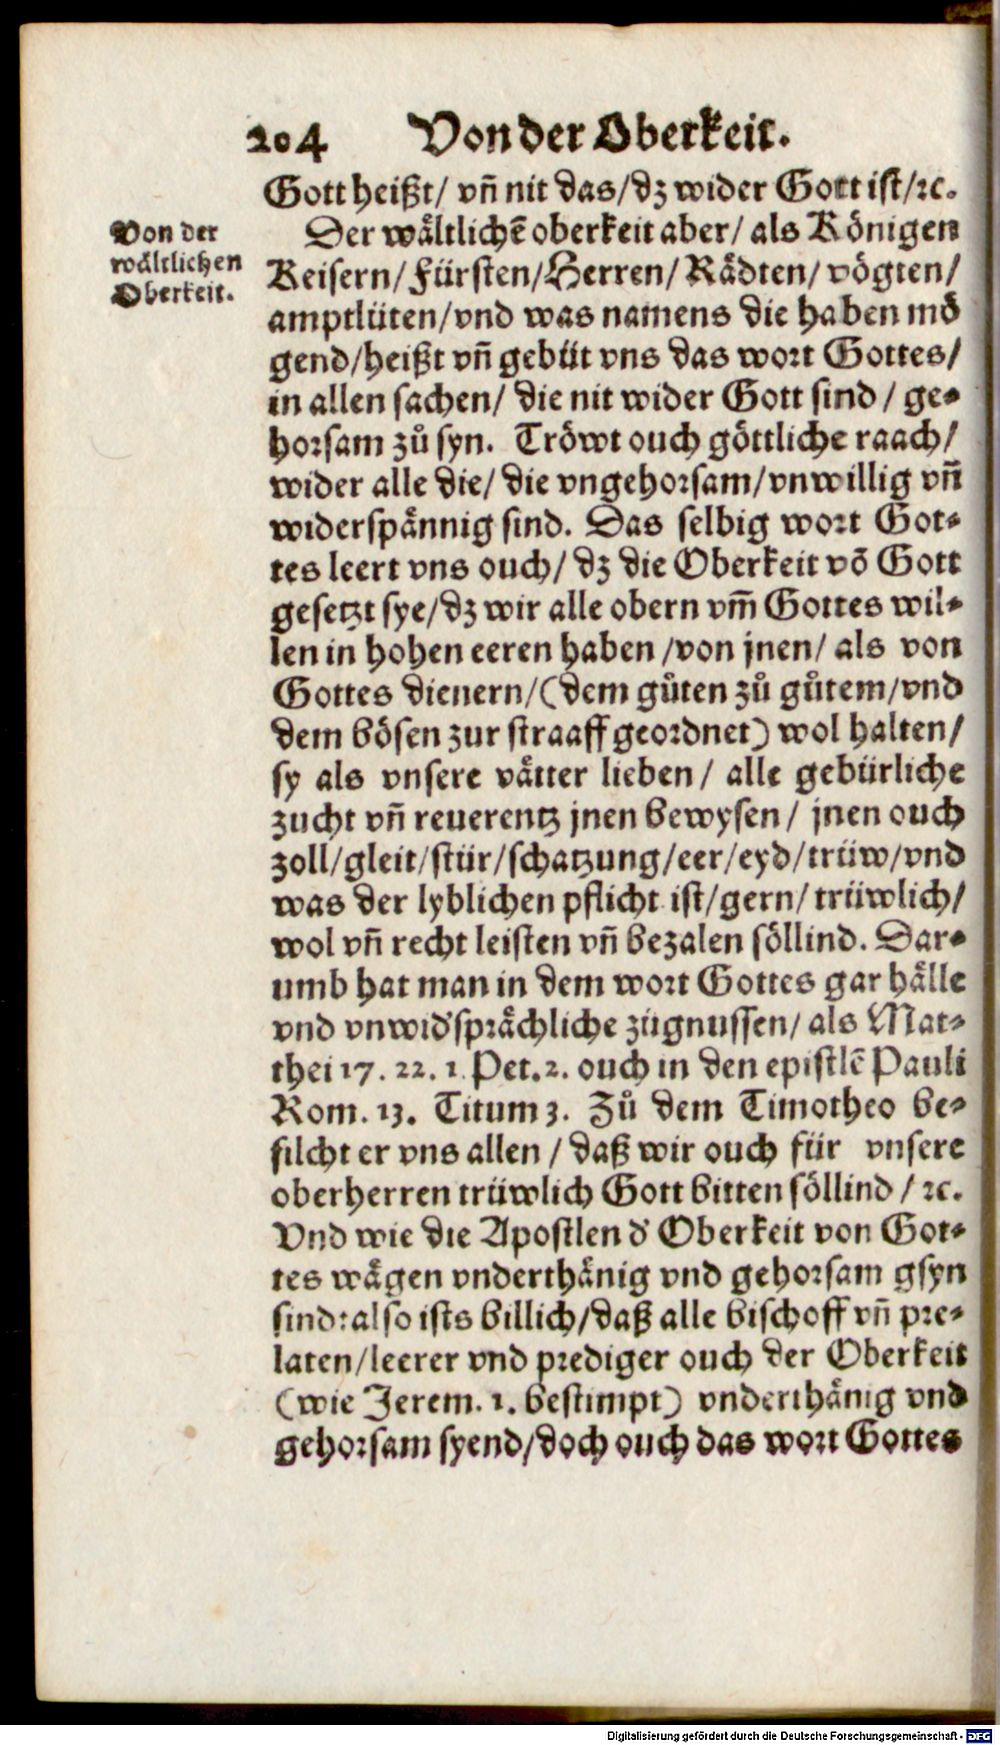 204 Von der Oberkeit.
Gott heißt/ vñ nit das/dz wider Gott ist/ꝛc.
Von der
wältlichen
Oberkeit.
Der wältlichē oberkeit aber/ als Königen
Keisern/Fürsten/Herren/Rädten/vögten/
amptlüten/vnd was namens die haben mö
gend/heißt vñ gebüt vns das wort Gottes/
in allen sachen/ die nit wider Gott sind / ge⸗
horsam zů syn. Tröwt ouch göttliche raach/
wider alle die/ die vngehorsam/vnwillig vñ
widerspännig sind. Das selbig wort Got⸗
tes leert vns ouch/ dz die Oberkeit vō Gott
gesetzt sye/dz wir alle obern vm̄ Gottes wil⸗
len in hohen eeren haben /von jnen/ als von
Gottes dienern/(dem gůten zů gůtem/vnd
dem bösen zur straaff geordnet) wol halten/
sy als vnsere vätter lieben / alle gebürliche
zucht vñ reuerentz jnen bewysen / jnen ouch
zoll/gleit/stür/schatzung/eer/eyd/trüw/vnd
was der lyblichen pflicht ist/gern/ trüwlich/
wol vñ recht leisten vñ bezalen söllind. Dar⸗
umb hat man in dem wort Gottes gar hälle
vnd vnwid'sprächliche zügnussen/ als Mat⸗
thei 17. 22. 1 Pet.2. ouch in den epistlē Pauli
Rom. 13. Titum 3. Zů dem Timotheo be⸗
filcht er vns allen / daß wir ouch für vnsere
oberherren trüwlich Gott bitten söllind / ꝛc.
Vnd wie die Apostlen d' Oberkeit von Got⸗
tes wägen vnderthänig vnd gehorsam gsyn
sind: also ists billich/daß alle bischoff vñ pre⸗
laten/leerer vnd prediger ouch der Oberkeit
(wie Jerem. 1. bestimpt) vnderthänig vnd
gehorsam syend/doch ouch das wort Gottes
Digitalisierung gefördert durch die Deutsche Forschungsgemeinschaft - DFG